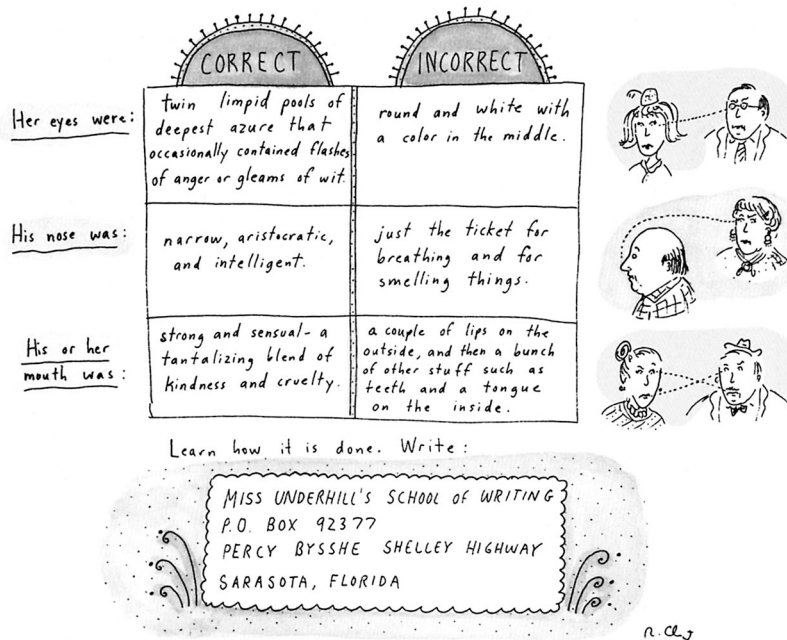 CORRECT
INCORRECT
Her eyes were:
twin limpid pools of
deepest azure that
occasionally contained flashes
of anger or gleams of wit.
round and white with
a color in the middle.
His nose was:
narrow, aristocratic,
and intelligent.
just the ticket for
breathing and for
smelling things.
His or her
mouth was:
strong and sensual- a
tantalizing blend of
kindness and cruelty.
a couple of lips on the
outside, and then a bunch
of other stuff such as
teeth and a tongue
on the inside.
Learn how it is done. Write:
MISS UNDERHILL'S SCHOOL OF WRITING
P.O. BOX 92377
PERCY BYSSHE SHELLEY HIGHWAY
SARASOTA, FLORIDA